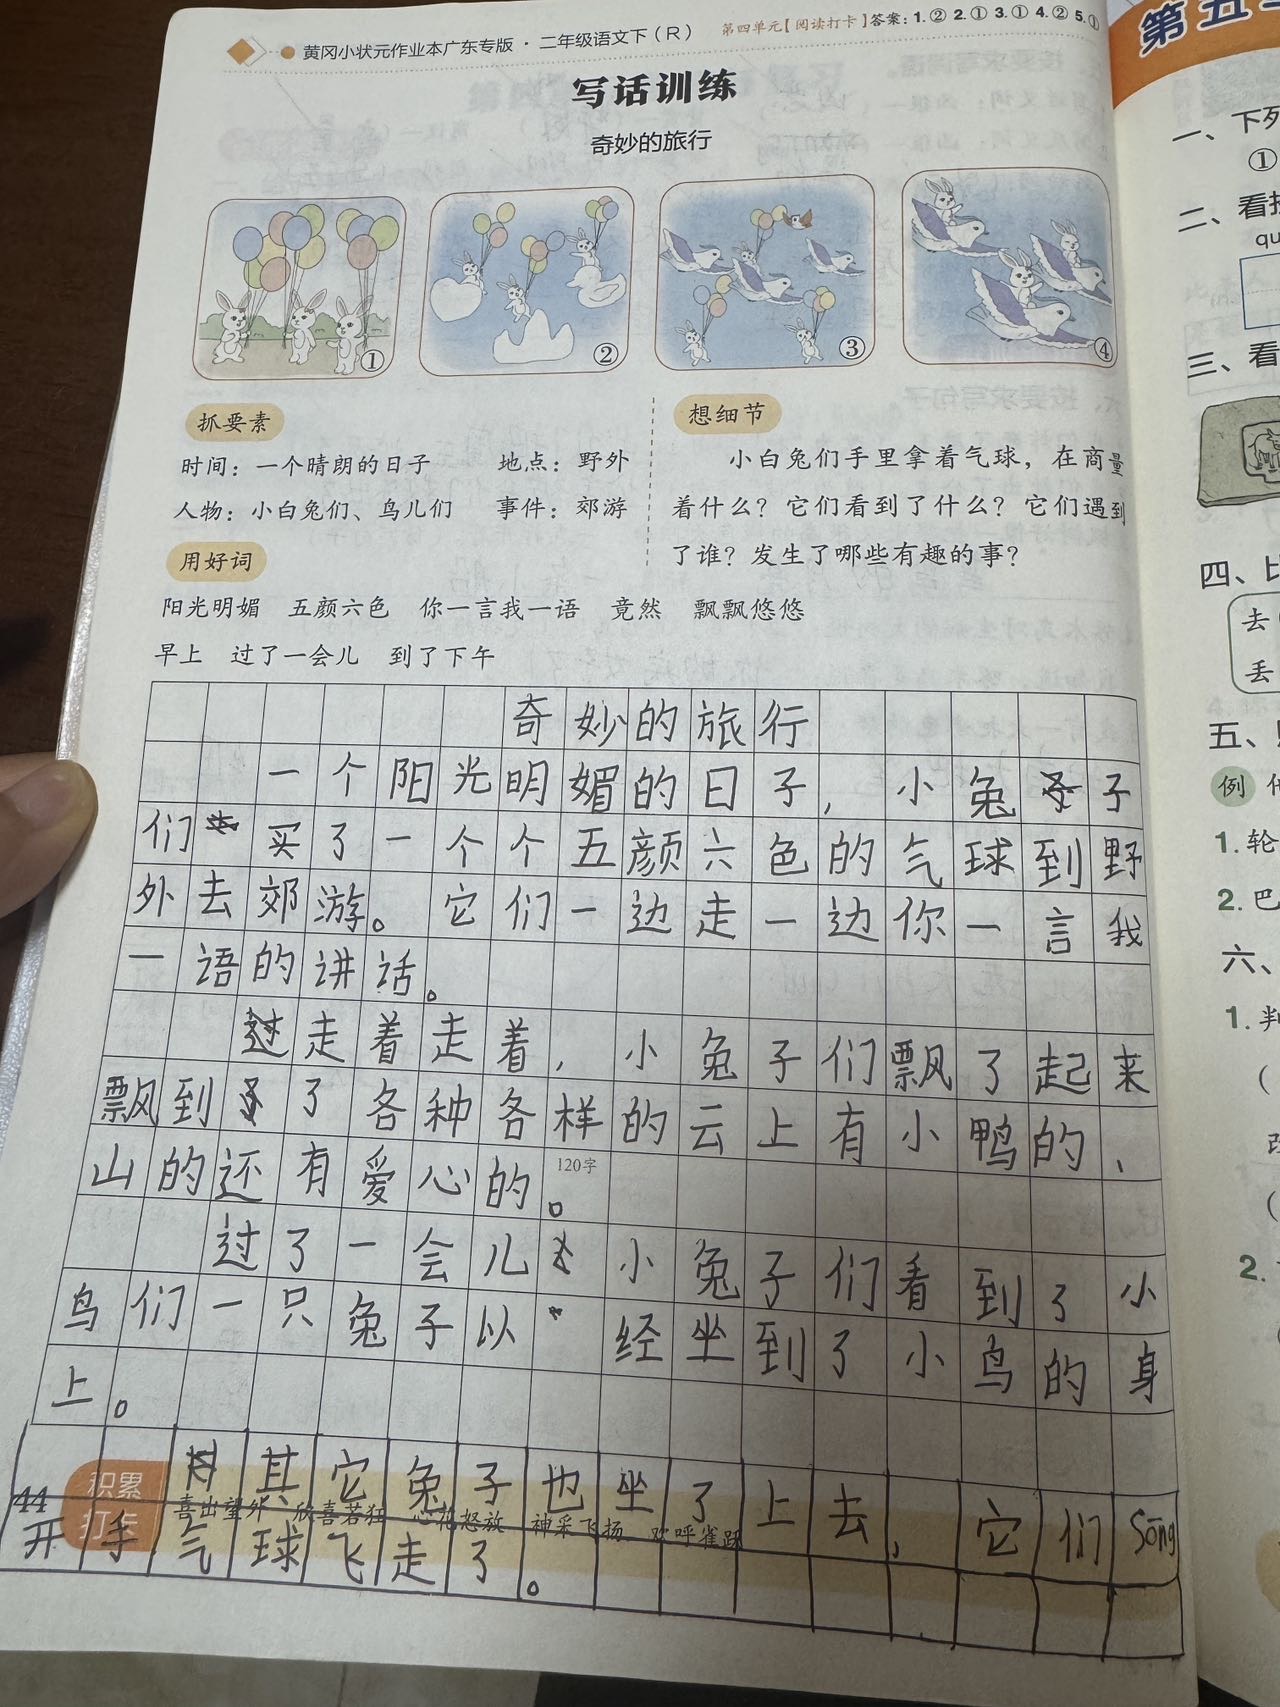 黄冈小状元作业本广东专版·二年级语文下（R）
第四单元【阅读打卡】答案：1.② 2.① 3.① 4.② 5.①
写话训练
奇妙的旅行
① ② ③ ④
抓要素
时间：一个晴朗的日子 地点：野外
人物：小白兔们、鸟儿们 事件：郊游
想细节
小白兔们手里拿着气球，在商量
着什么？它们看到了什么？它们遇到
了谁？发生了哪些有趣的事？
用好词
阳光明媚 五颜六色 你一言我一语 竟然 飘飘悠悠
早上 过了一会儿 到了下午
奇妙的旅行
一个阳光明媚的日子，小兔子
们买了一个个五颜六色的气球到野
外去郊游。它们一边走一边你一言我
一语的讲话。
走着走着，小兔子们飘了起来
飘到了各种各样的云上有小鸭的、
山的还有爱心的。
120字
过了一会儿小兔子们看到了小
鸟们一只兔子以经坐到了小鸟的身
上。
其它兔子也坐了上去，它们sōng
开手气球飞走了。
积累
打卡
喜出望外 欣喜若狂 心花怒放 神采飞扬 欢呼雀跃
44
第五
一、下列
①
二、看拼
qu
三、看
四、比
去
丢
五、
例
1.轮
2.巴
六、
1.判
（
2.